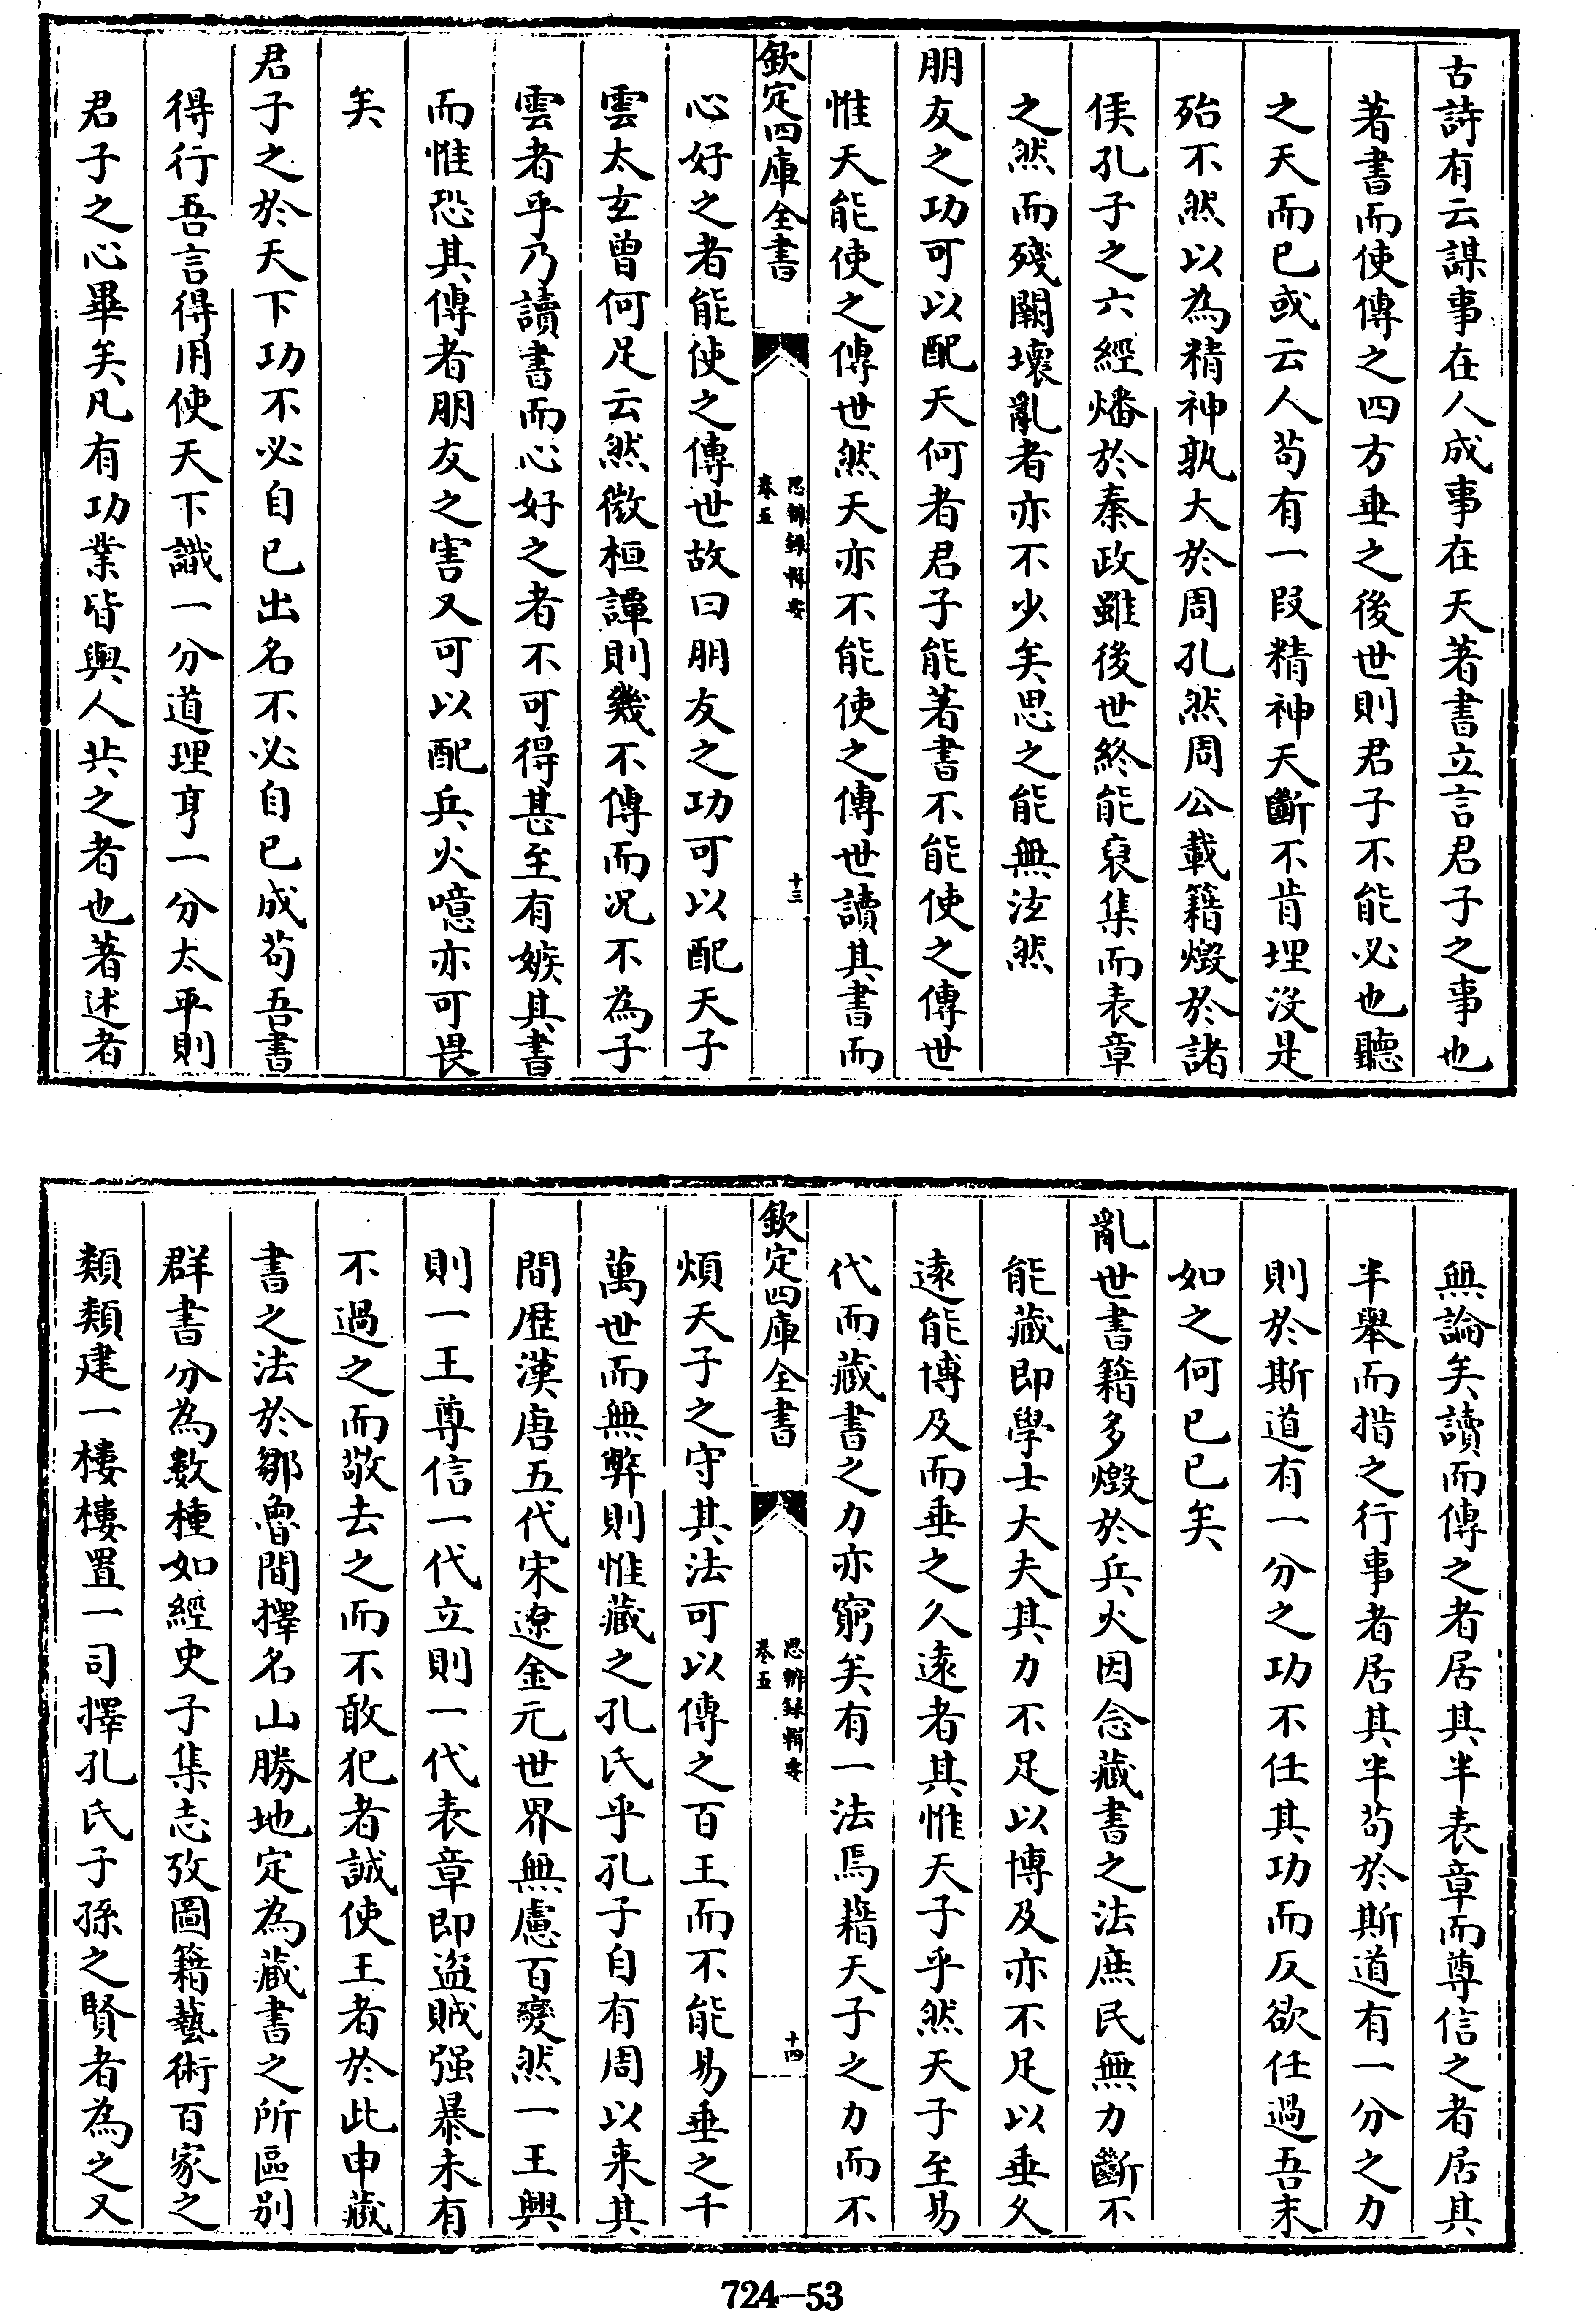 古詩有云謀事在人成事在天著書立言君子之事也
著書而使傳之四方垂之後世則君子不能必也聽
之天而已或云人苟有一段精神天斷不肯埋沒是
殆不然以為精神孰大於周孔然周公載籍燬於諸
侯孔子之六經燔於秦政雖後世終能裒集而表章
之然而殘闕壞亂者亦不少矣思之能無泫然
朋友之功可以配天何者君子能著書不能使之傳世
惟天能使之傳世然天亦不能使之傳世讀其書而
欽定四庫全書
思辨錄輯要
卷五
十三
心好之者能使之傳世故曰朋友之功可以配天子
雲太玄曾何足云然微桓譚則幾不傳而况不為子
雲者乎乃讀書而心好之者不可得甚至有嫉其書
而惟恐其傳者朋友之害又可以配兵火噫亦可畏
矣
君子之於天下功不必自已出名不必自已成苟吾書
得行吾言得用使天下識一分道理亨一分太平則
君子之心畢矣凡有功業皆與人共之者也著述者
無論矣讀而傳之者居其半表章而尊信之者居其
半舉而措之行事者居其半苟於斯道有一分之力
則於斯道有一分之功不任其功而反欲任過吾末
如之何已已矣
亂世書籍多燬於兵火因念藏書之法庶民無力斷不
能藏即學士大夫其力不足以博及亦不足以垂久
遠能博及而垂之久遠者其惟天子乎然天子至易
代而藏書之力亦窮矣有一法焉藉天子之力而不
欽定四庫全書
思辨録輯要
卷五
十四
煩天子之守其法可以傳之百王而不能易垂之千
萬世而無弊則惟藏之孔氏乎孔子自有周以来其
間歴漢唐五代宋遼金元世界無慮百變然一王興
則一王尊信一代立則一代表章即盜賊强暴未有
不過之而敬去之而不敢犯者誠使王者於此申藏
書之法於鄒魯間擇名山勝地定為藏書之所區别
群書分為數種如經史子集志攷圖籍藝術百家之
類類建一樓樓置一司擇孔氏子孫之賢者為之又
724—53